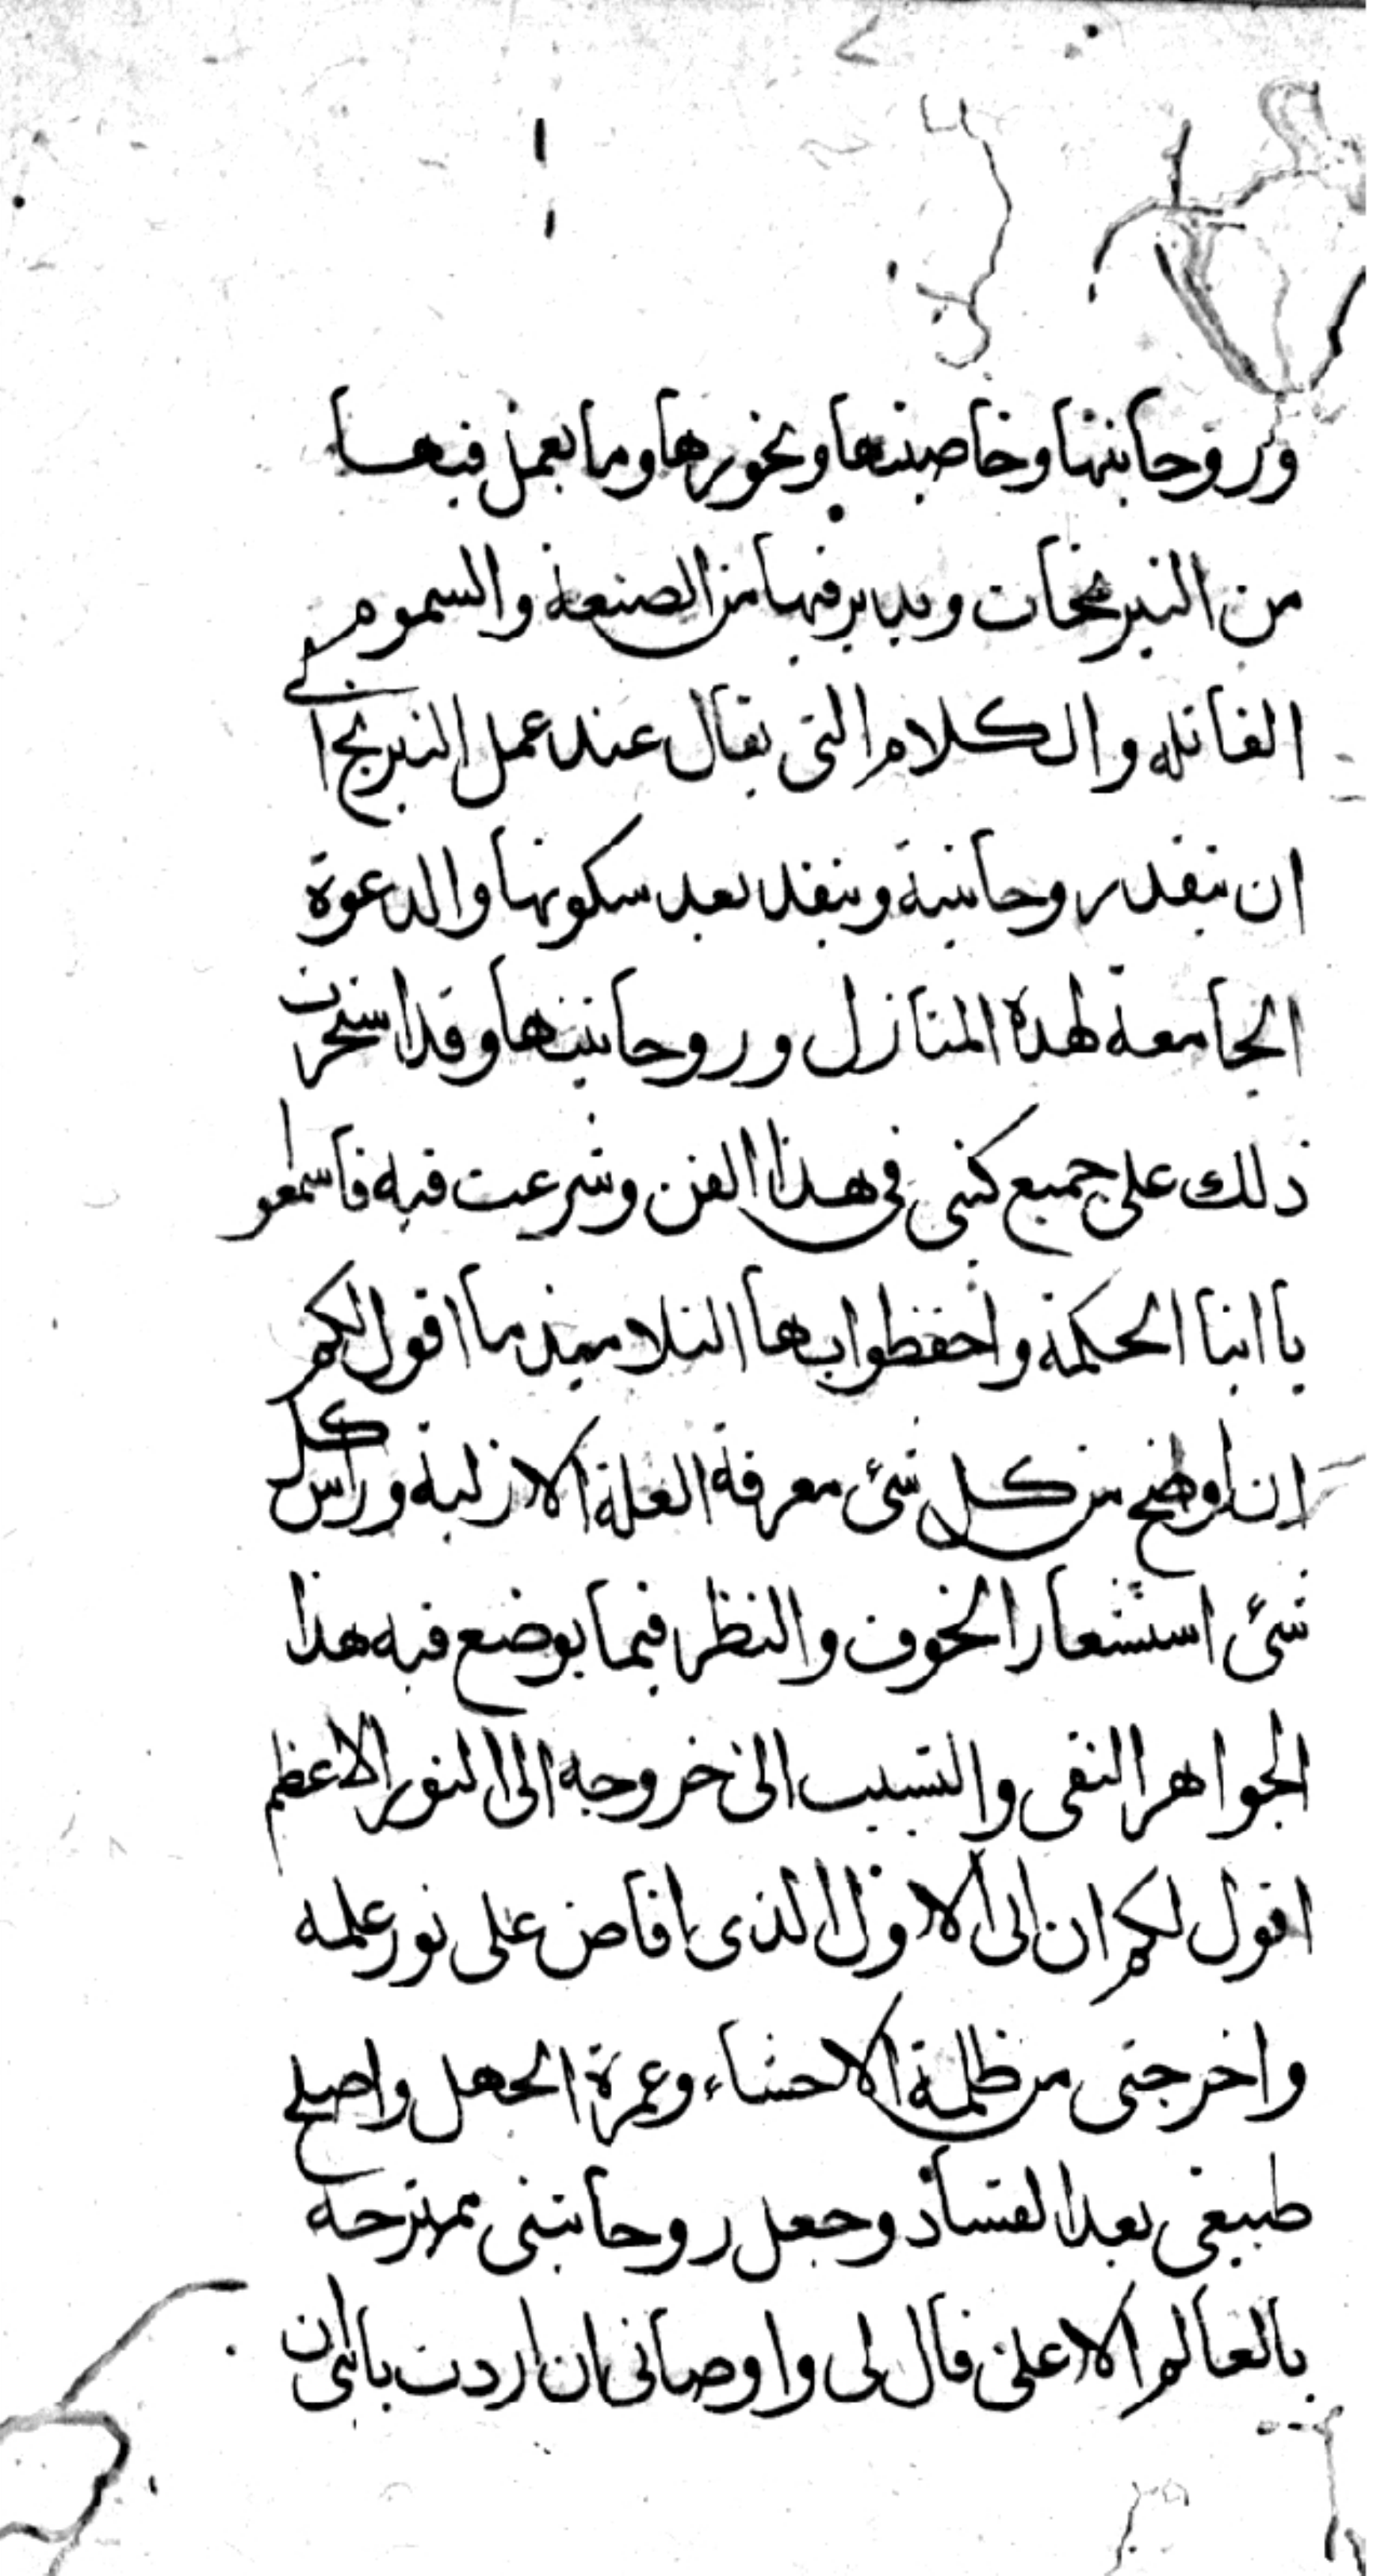 وروحانيتها وخاصيتها وبخورها وما يعمل فيها
من النيرنجات ويدابر فيها من الصنعة والسموم
القاتله والكلام التى يقال عند عمل النيرنج الى
ان ينفد روحانية وينفد بعد سكونها والدعوة
الجامعة لهذه المنازل وروحانيتها وقد استخرت
ذلك على جميع كتبى فى هذا الفن وشرعت فيه فاسمعو
يا ابنا الحكمة واحفظوا يها التلاميذ ما اقول لكم
ان اوضح من كل شئ معرفة العلة الازلية وراس كل
شئ استشعار الخوف والنظر فيما يوضع فيه هذا
الجواهر النقى والتسبب الى خروجه الى النور الاعظم
اقول لكم ان ابى الاول الذى افاض على نور علمه
واخرجنى من ظلمة الاحشاء وغمرة الجهل واصلح
طبيعتى بعد الفساد وجعل روحانيتى ممتزجة
بالعالم الاعلى قال لى واوصانى ان اردت يا بنى ان